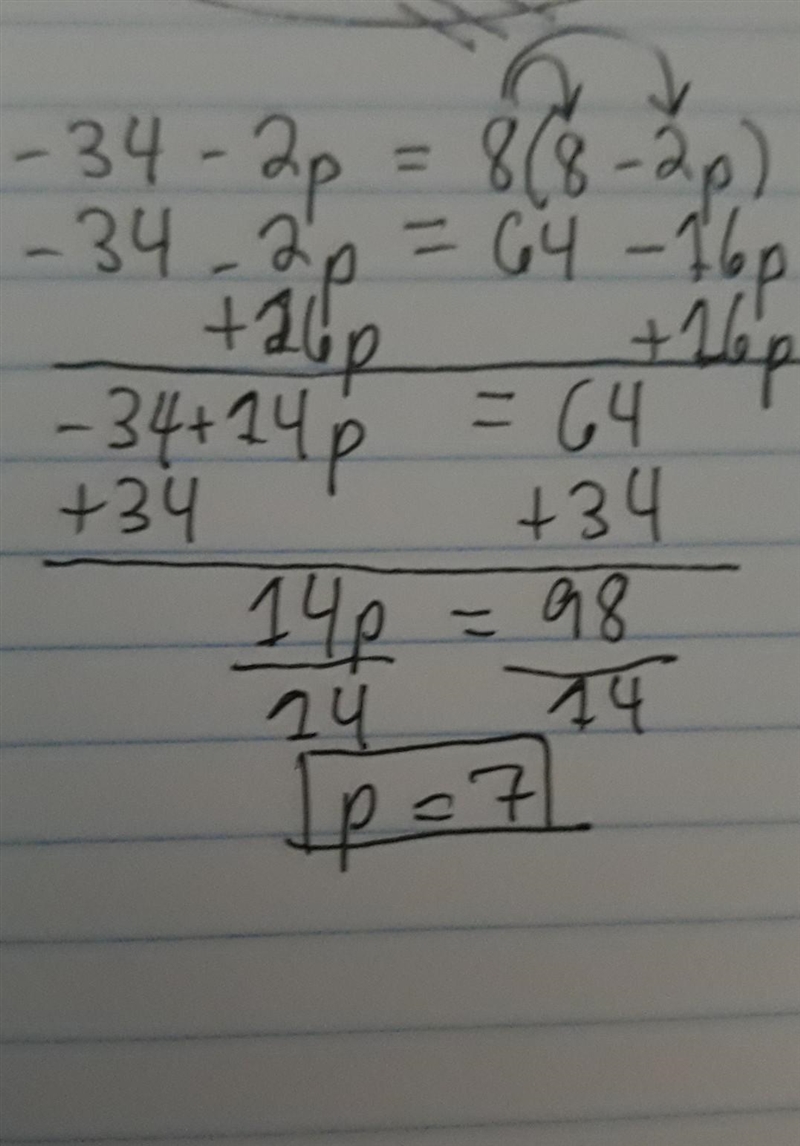 -34 - 2p = 8(8 - 2p)
-34 - 2p = 64 - 16p
+16p +16p
-34+14p = 64
+34 +34
14p = 98
14 14
p = 7